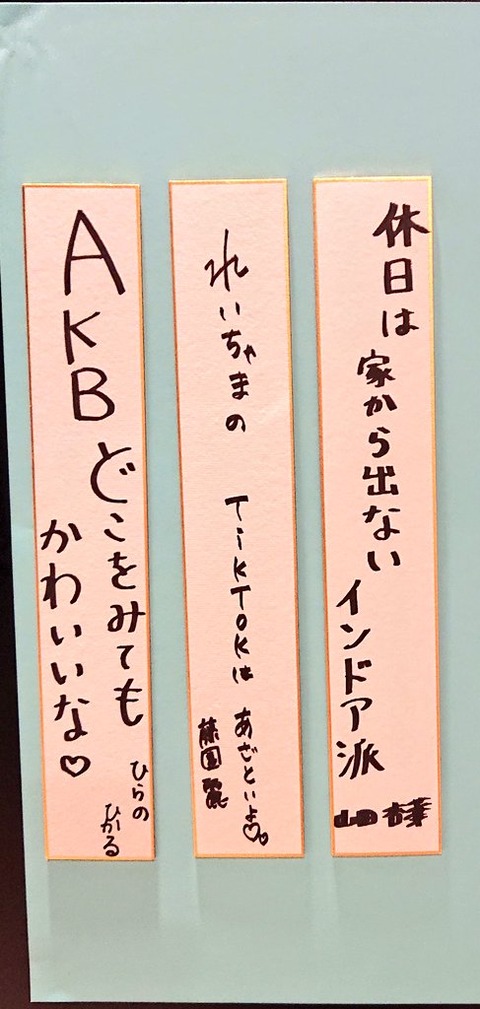 休日は 家から出ない
インドア派
山田杏華
れいちゃまの TikTOKは あざといよ♡♡
藤園麗
AKB どこをみても
かわいいな♡
ひらの
ひかる